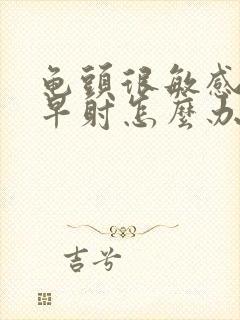 龟頭很敏感
早射怎麼办
吉兮